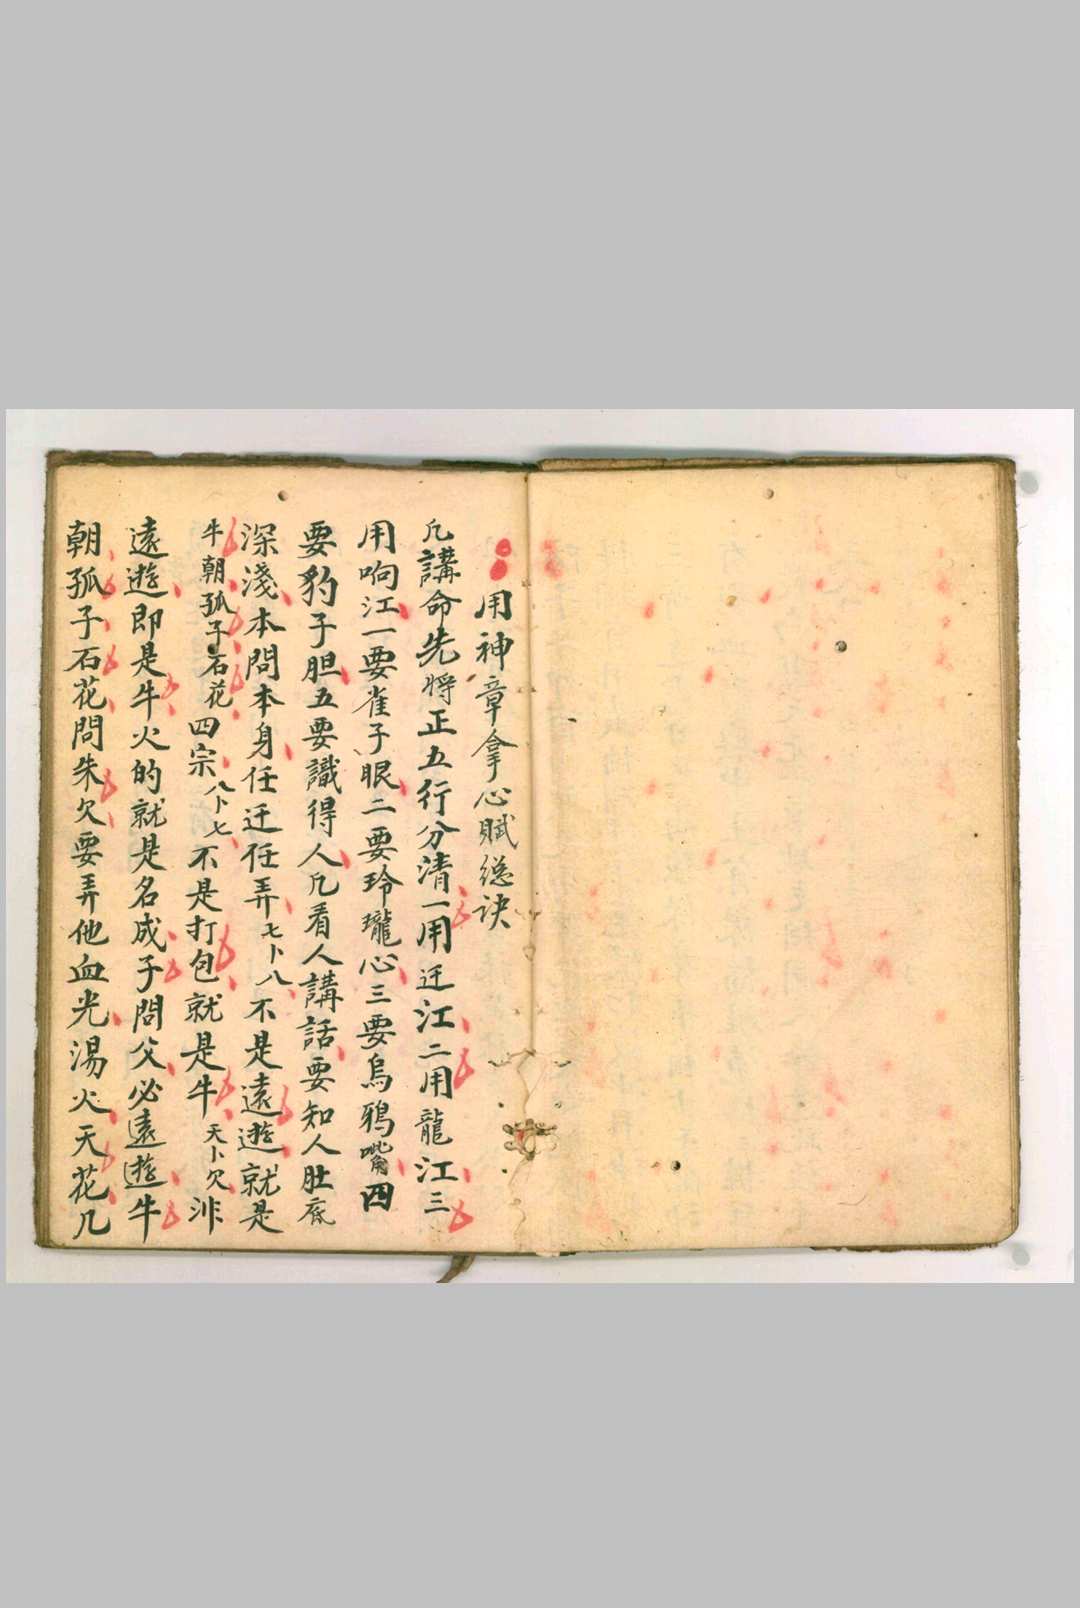 用神章拿心賦總訣
凢講命先將正五行分清一用迋江二用龍江三
用响江一要雀子眼二要玲瓏心三要烏鴉嘴四
要豹子胆五要識得人凢看人講話要知人肚底
深淺本問本身任迋任弄七卜八不是遠遊就是
牛朝孤子石花四宗八卜七不是打包就是牛天卜欠
遠遊即是牛火的就是名成子問父必遠遊牛
朝孤子石花問朱欠要弄他血光湯火天花几